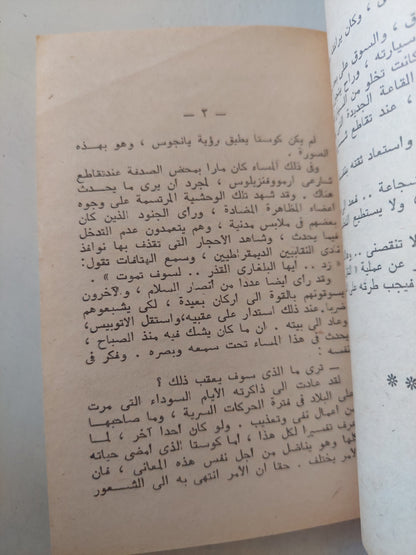 — ٣ —
لم يكن كوستا يطيق رؤية يانجوس ، وهو بهذه
الصورة .
وفى ذلك المساء كان مارا بمحض الصدفة عندتقاطع
شارعى ارمووفنزيلوس ، لمجرد أن يرى ما يحدث
هناك . وقد شهد تلك الوحشية المرتسمة على وجوه
أعضاء المظاهرة المضادة ، ورأى الجنود الذين كان
بعضهم فى ملابس مدنية ، وهم يتعمدون عدم التدخل
فيما يحدث ، وشاهد الاحجار التى تقذف بها نوافذ
نادى النقابيين الديمقراطيين ، وسمع الهتافات تقول:
« زد .. أيها البلغارى القذر .. لسوف تموت » .
وقد رأى ايضا عددا من أنصار السلام، والآخرون
يسوقونهم بالقوة الى اركان بعيدة ، لكى يشبعوهم
ضربا.عند ذلك استدار على عقبيه،واستقل الاتوبيس،
وعاد الى بيته . ان ما كان يشك فيه منذ الصباح ،
يحدث فى هذا المساء تحت سمعه وبصره . وفكر فى
نفسه :
— ترى ما الذى سوف يعقب ذلك ؟
لقد عادت الى ذاكرته الأيام السوداء التى مرت
على البلاد فى فترة الحركات السرية ، وما صاحبها
من أعمال نفى وتعذيب . ولو كان أحدا آخر ، لما
عرف تفسيرا لكل هذا ، أما كوستا الذى أمضى حياته
كلها وهو يناضل من أجل نفس هذه المعانى ، فان
الأمر يختلف . حقا ان الأمر انتهى به الى الشعور
، وكان
، والسوق
سيارته ، وراح
كانت تخلو من
القاعة الجديدة
، عند تقاطع
واستعاد لقته
شجاعة ..
، ولا يستطيع
لا تنقصنى ..
عن عملية
فيجب طرقه
* *